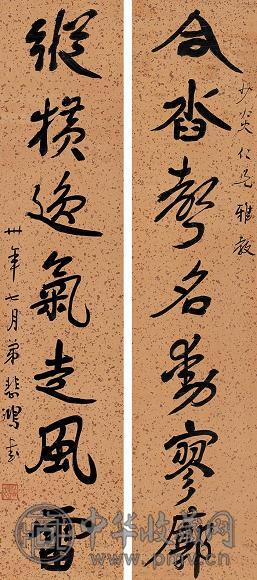 合沓聲名動寥廓
少炎仁兄雅教
縱橫逸氣走風雷
卅年七月弟悲鴻書
中华收藏网